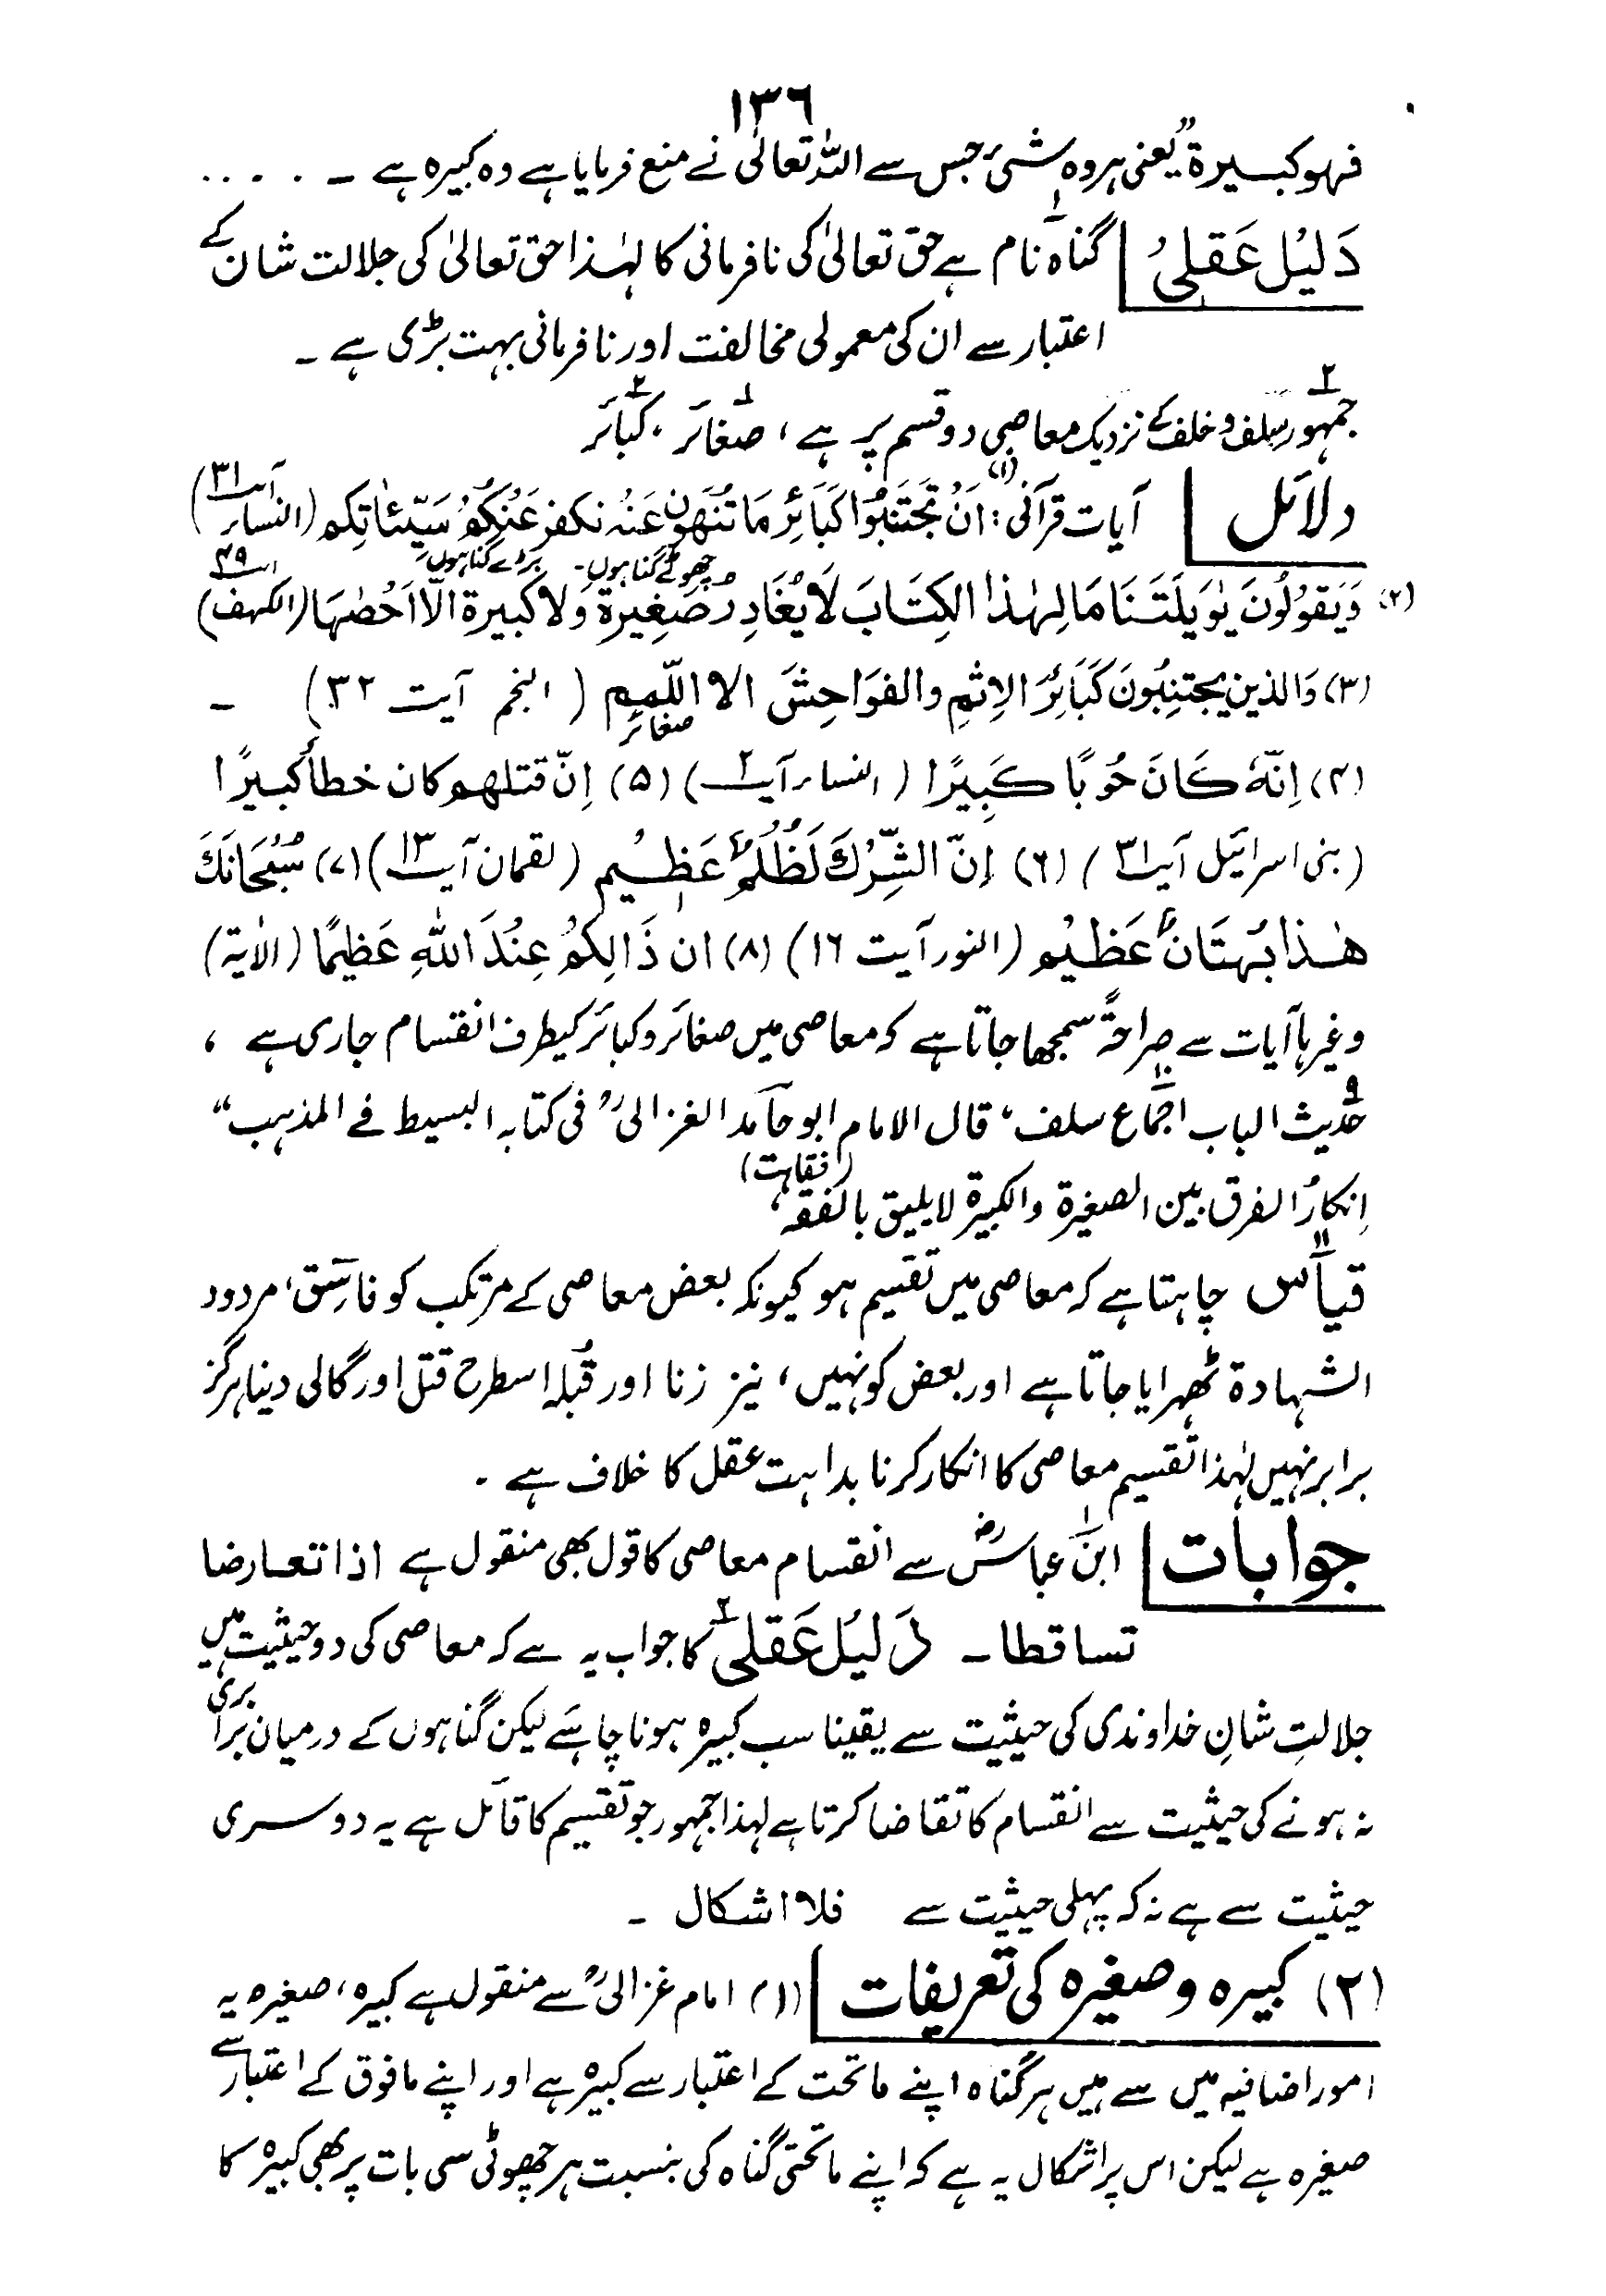 ۱۳۶
فہو کبیرۃ" یعنی ہر وہ شیٔ جس سے اللہ تعالیٰ نے منع فرمایا ہے وہ کبیرہ ہے ۔ ....
دَلِیُل عَقلِیُ | گناہ نام ہے حق تعالیٰ کی نافرمانی کا لہٰذا حق تعالیٰ کی جلالت شان کے
اعتبار سے ان کی معمولی مخالفت اور نافرمانی بہت بڑی ہے ۔
۲ جمہور سلف و خلف کے نزدیک معاصی دو قسم پر ہے ، ۱ صغائر ، ۲ کبائر
دلائل | آیات قرآنی : (۱) اَنُ تَجُتَنِبُوُا کَبَآئِرَ مَا تُنُہَوُنَ عَنُہُ نکفر عَنُکُمُ سَیِّئاٰتِکم (النساء آیت ۳۱)
چھوٹے گناہوں ۔ بڑے گناہوں
(۲) وَیَقوُلُونَ یٰوَیلَتَنَا مَا لِہٰذا الکِتَابَ لَا یُغَادِرُ صَغِیرۃ وَلا کبیرۃ الّا اَحُصٰہَا (الکہف آیت ۴۹)
(۳) وَالذین یجتنِبُونَ کَبَائِرَ الاِثمِ والفوَاحِشَ الا اللّمم ( النجم آیت ۳۲ ) ۔
صغائر
(۴) اِنَّہٗ کَانَ حُوبًا کَبِیرًا ( النساء آیت ۲ ) (۵) اِنّ قتلھم کان خطأً کبیرًا
( بنی اسرائیل آیت ۳۱ ) (۶) اِنّ الشِّرُكَ لَظُلُمٌ عَظِیُم ( لقمان آیت ۱۳ ) (۷) سُبُحَانَكَ
ھٰذا بُہتَانٌ عَظیُم ( النور آیت ۱۶ ) (۸) ان ذَالِکُمُ عِنُدَ اللّٰہِ عَظِیمًا ( الاٰیۃ )
وغیرہا آیات سے صراحۃً سمجھا جاتا ہے کہ معاصی میں صغائر و کبائر کیطرف انقسام جاری ہے ،
۹ حدیث الباب ۱۰ اجماع سلف ، قال الامام ابو حامد الغزالیؒ فی کتابہ البسیط فے المذہب "
اِنکارُ الفرق بین الصغیرۃ والکبیرۃ لا یلیق بالفقہ ، (فقاہت)
۱۱ قیاس چاہتا ہے کہ معاصی میں تقسیم ہو کیونکہ بعض معاصی کے مرتکب کو فاسق ، مردود
الشہادۃ ٹھہرایا جاتا ہے اور بعض کو نہیں ، نیز زنا اور قُبلہ اسطرح قتل اور گالی دینا ہرگز
برابر نہیں لہٰذا تقسیم معاصی کا انکار کرنا بداہت عقل کا خلاف ہے ۔
جوابات | ۱ ابن عباسؓ سے انقسام معاصی کا قول بھی منقول ہے اذا تعارضا
تساقطا ۔ ۲ دَلِیُل عَقلی کا جواب یہ ہے کہ معاصی کی دو حیثیت ہیں
جلالتِ شانِ خداوندی کی حیثیت سے یقینا سب کبیرہ ہونا چاہئے لیکن گناہوں کے درمیان برابری
نہ ہونے کی حیثیت سے انقسام کا تقاضا کرتا ہے لہذا جمہور جو تقسیم کا قائل ہے یہ دوسری
حیثیت سے ہے نہ کہ پہلی حیثیت سے فلا اشکال ۔
(۲) کبیرہ و صغیرہ کی تعریفات | (۱) امام غزالیؒ سے منقول ہے کبیرہ ، صغیرہ یہ
امور اضافیہ میں سے ہیں ہر گناہ اپنے ماتحت کے اعتبار سے کبیرہ ہے اور اپنے مافوق کے اعتبار سے
صغیرہ ہے لیکن اس پر اشکال یہ ہے کہ اپنے ماتحتی گناہ کی بنسبت ہر چھوٹی سی بات پر بھی کبیرہ کا